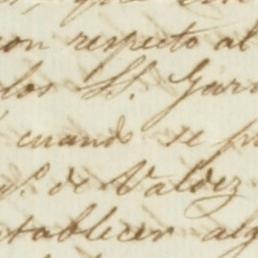 con respecto al
los SS. Gar
cuando se p
de Valdez
stablecer alg